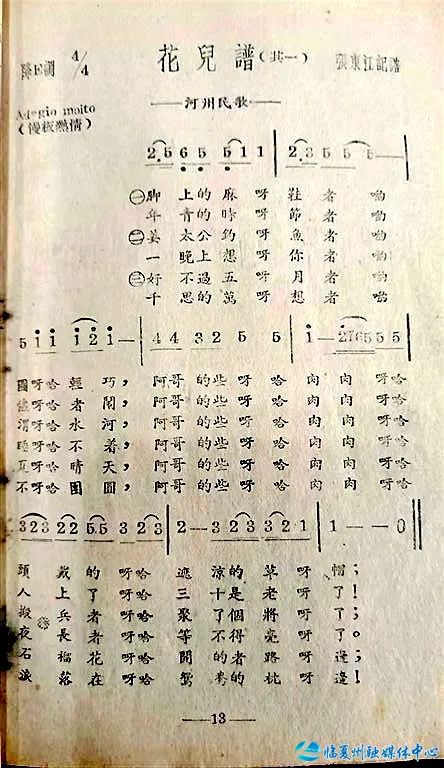 降E調 4/4 花兒譜(其一) 張東江記譜
Adagio moito
(慢板熱情)
——河州民歌——
2·5 6 5 5 1 1 | 2·3 5 5 5—
㊀脚上的麻呀鞋者呦
年青的時呀節者呦
㊁姜太公釣呀魚者呦
一晚上想呀你者呦
㊂好不過五呀月者呦
千思的萬呀想者呦
5 1 1 1 2 1— | 4 4 3 2 5 5 | 1—2765 5 5
呀哈輕巧,阿哥的些呀哈肉肉呀哈
呀哈者閙,阿哥的些呀哈肉肉呀哈
渭呀哈水河,阿哥的些呀哈肉肉呀哈
睡呀哈不着,阿哥的些呀哈肉肉呀哈
夏呀哈晴天,阿哥的些呀哈肉肉呀哈
不呀哈團圓,阿哥的些呀哈肉肉呀哈
3 2 3 2 2 5 5 3 2 3 | 2——3 2 3 3 2 1 | 1——0
頭戴的呀哈遮涼的草呀帽;
人上了呀哈三十是老呀了!
搬兵者呀哈聚了個將呀了;
夜長者呀哈等不得亮呀了。
石榴花呀哈開的者路呀邊;
淚落在呀哈鴛鴦的枕呀邊!
——13——
临夏州融媒体中心